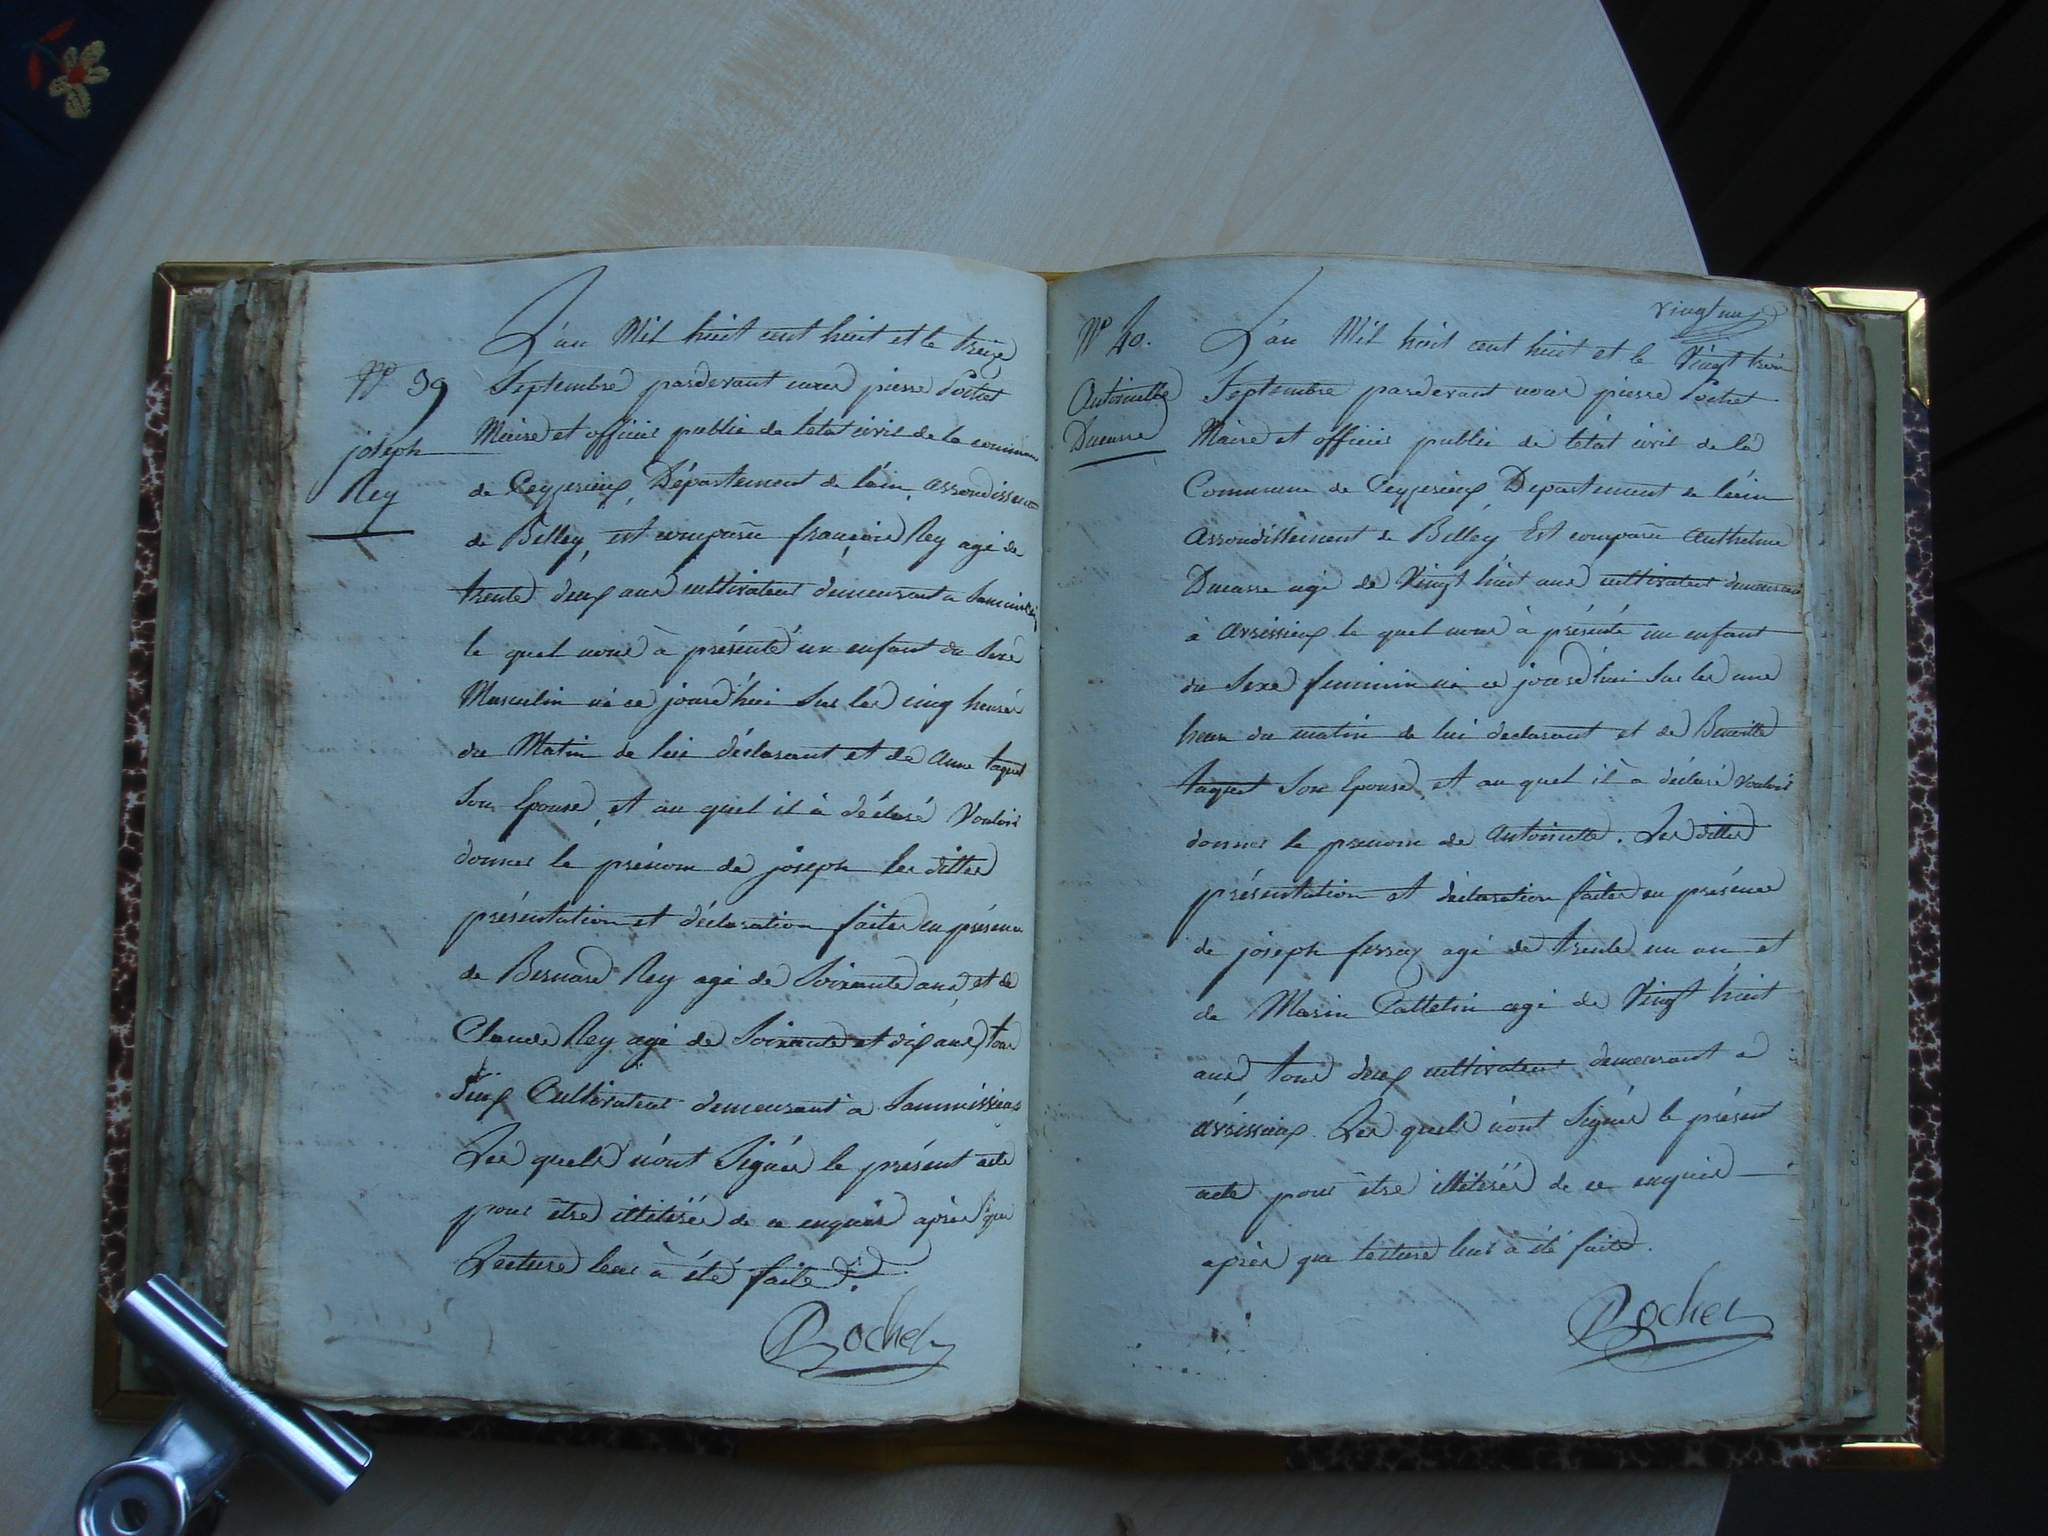 N° 39
joseph
Rey
L'an Mil huit cent huit et le treize
Septembre pardevant nous pierre Pochet
Maire et officier public de letat civil de la commune
de Ceyzerieux, Département de láin, arrondissement
de Belley, est comparu françois Rey agé de
trente deux ans cultivateur demeurant a
le quel nous à présenté un enfant du Sexe
Masculin né ce jourd'hui Sur les cinq heures
du Matin de lui déclarant et de anne taquet
Son Epouse, et au quel il à déclaré Vouloir
donner le prénom de joseph les dittes
présentation et déclaration faites en présence
de Bernard Rey agé de Soixante ans, et de
Claude Rey agé de Soixante et dix ans, tous
deux Cultivateur demeurant a
Les quels n'ont Signés le présent acte
pour être illitérés de ce enquis après que
Lecture leur à été faite
Pochet
vingt un
N° 40.
Antoinette
Ducarre
L'an Mil huit cent huit et le Vingt trois
Septembre pardevant nous pierre Pochet
Maire et officier public de létat civil de la
Commune de Ceyzerieux Departement de láin
arrondissement de Belley Est comparu anthelme
Ducarre agé de Vingt huit ans cultivateur demeurant
à avrissieux le quel nous à présenté un enfant
du Sexe feminin né ce jourd'hui Sur les une
heure du matin de lui declarant et de Benoitte
taquet Son Epouse, et au quel il à déclaré Vouloir
donner le prenom de antoinette. Les dittes
présentation et déclaration faites en présence
de joseph ferraz agé de trente un an et
de Marin Cattelin agé de Vingt huit
ans tous deux cultivateur demeurant a
avrissieux. Les quels n'ont Signés le présent
acte pour être illitérés de ce enquis
après que lecture leur à été faite.
Pochet